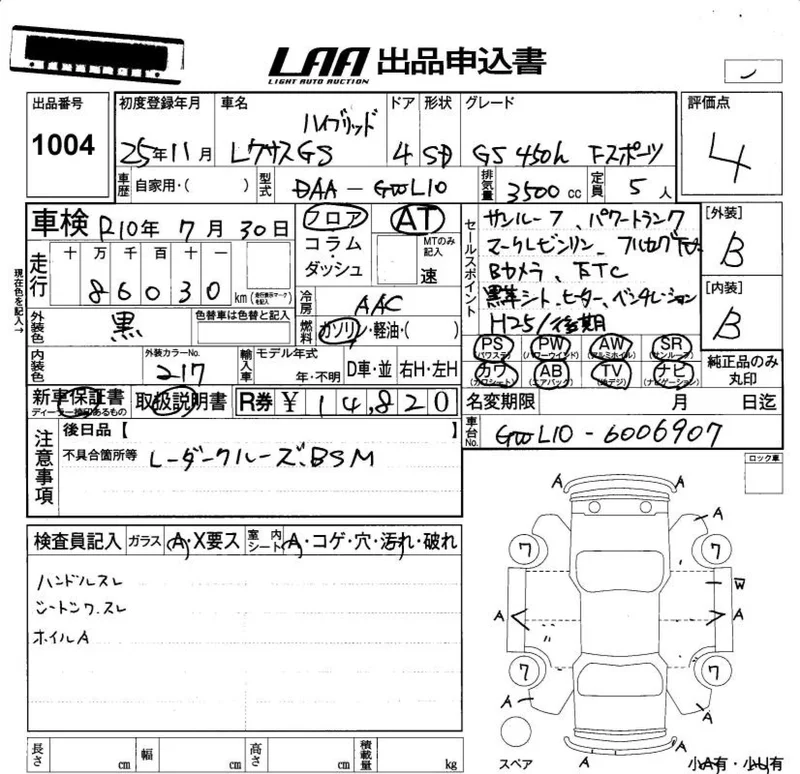 LAA 出品申込書
LIGHT AUTO AUCTION
出品番号
1004
初度登録年月
25年11月
車名
ハイブリッド
レクサスGS
ドア
4
形状
SD
グレード
GS 450h Fスポーツ
評価点
4
車歴
自家用・( )
型式
DAA-GWL10
排気量
3500cc
定員
5人
車検
R10年7月30日
フロア
コラム・
ダッシュ
AT
MTのみ記入
速
セールスポイント
サンルーフ、パワートランク
マークレビンソン、フルセグTV
Bカメラ、ETC
黒革シート、ヒーター、ベンチレーション
H25/後期
[外装]
B
[内装]
B
現在色を記入→
走行
十 万 千 百 十 一
86030
km
(走行表示マークを記入)
冷房
AAC
燃料
ガソリン・軽油・( )
外装色
黒
色替車は色替と記入
内装色
外装カラーNo.
217
輸入車
モデル年式
年・不明
D車・並
右H・左H
PS (パワステ)
PW (パワーウインド)
AW (アルミホイル)
SR (サンルーフ)
カワ (カワシート)
AB (エアバック)
TV (地デジ)
ナビ (ナビゲーション)
純正品のみ
丸印
新車保証書
ディーラー検印あるもの
取扱説明書
R券 ¥ 14,820
名変期限
月 日迄
車台No.
GWL10-6006907
注意事項
後日品【 】
不具合箇所等
レーダークルーズ、BSM
ロック車
検査員記入
ガラス
A・X要ス
室内シート
A・コゲ・穴・汚れ・破れ
ハンドルスレ
シートシワ・スレ
ホイルA
A A
A
7 7
W
A A
7 7
A A
A A
スペア
小A有・小U有
長さ cm
幅 cm
高さ cm
積載量 kg